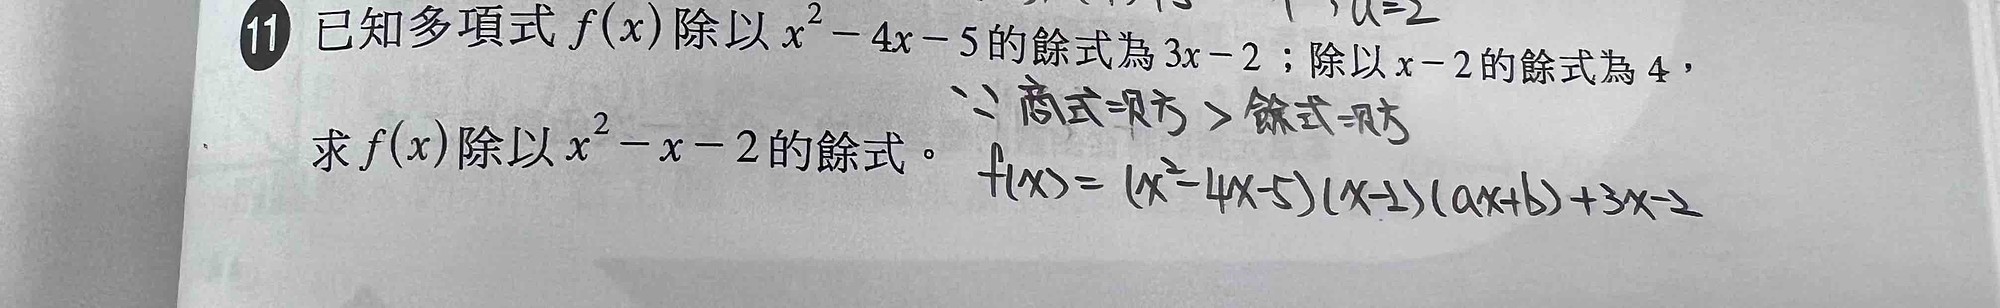 , a=2
11 已知多項式 f(x) 除以 x² − 4x − 5 的餘式為 3x − 2；除以 x − 2 的餘式為 4，
∵ 商式次方 > 餘式次方
求 f(x) 除以 x² − x − 2 的餘式。
f(x) = (x²-4x-5)(x-2)(ax+b)+3x-2